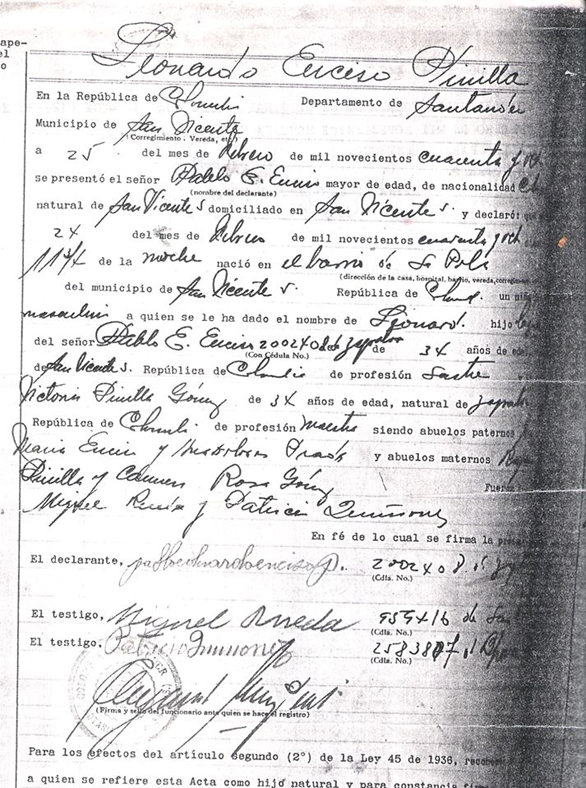 ape-
el
o
Leonardo Enciso Pinilla
En la República de Colombia Departamento de Santander
Municipio de San Vicente
(Corregimiento, Vereda, etc.)
a 25 del mes de Febrero de mil novecientos cuarenta y och
se presentó el señor Pablo E. Enciso mayor de edad, de nacionalidad Co
(nombre del declarante)
natural de San Vicente S domiciliado en San Vicente S. y declaró: que
24 del mes de Febrero de mil novecientos cuarenta y och
11 3/4 de la noche nació en el barrio de
(dirección de la casa, hospital, barrio, vereda, corregim
del municipio de San Vicente S. República de un niñ
masculino a quien se le ha dado el nombre de Leonardo. hijo
del señor Pablo E. Enciso 2002408 de Zapatoca de 34 años de eda
(Con Cédula No.)
de San Vicente S. República de Colombia de profesión Sastre
Victoria Pinilla Gómez de 34 años de edad, natural de Zapato
República de Colombia de profesión Maestra siendo abuelos paternos
Enciso y y abuelos maternos
Pinilla y Carmen Rosa Gómez Fueron
Miguel Rueda y Patricio Quiñonez
En fé de lo cual se firma la prese
El declarante, pabloeduardoencisop. 2002408 de
(Cdla. No.)
El testigo, Miguel Rueda 959416 de San
(Cdla. No.)
El testigo. Patricio Quinonez
(Cdla. No.)
(Firma y sello del funcionario ante quien se hace el registro)
Para los efectos del artículo segundo (2°) de la Ley 45 de 1936, recono
a quien se refiere esta Acta como hijo natural y para constancia firm